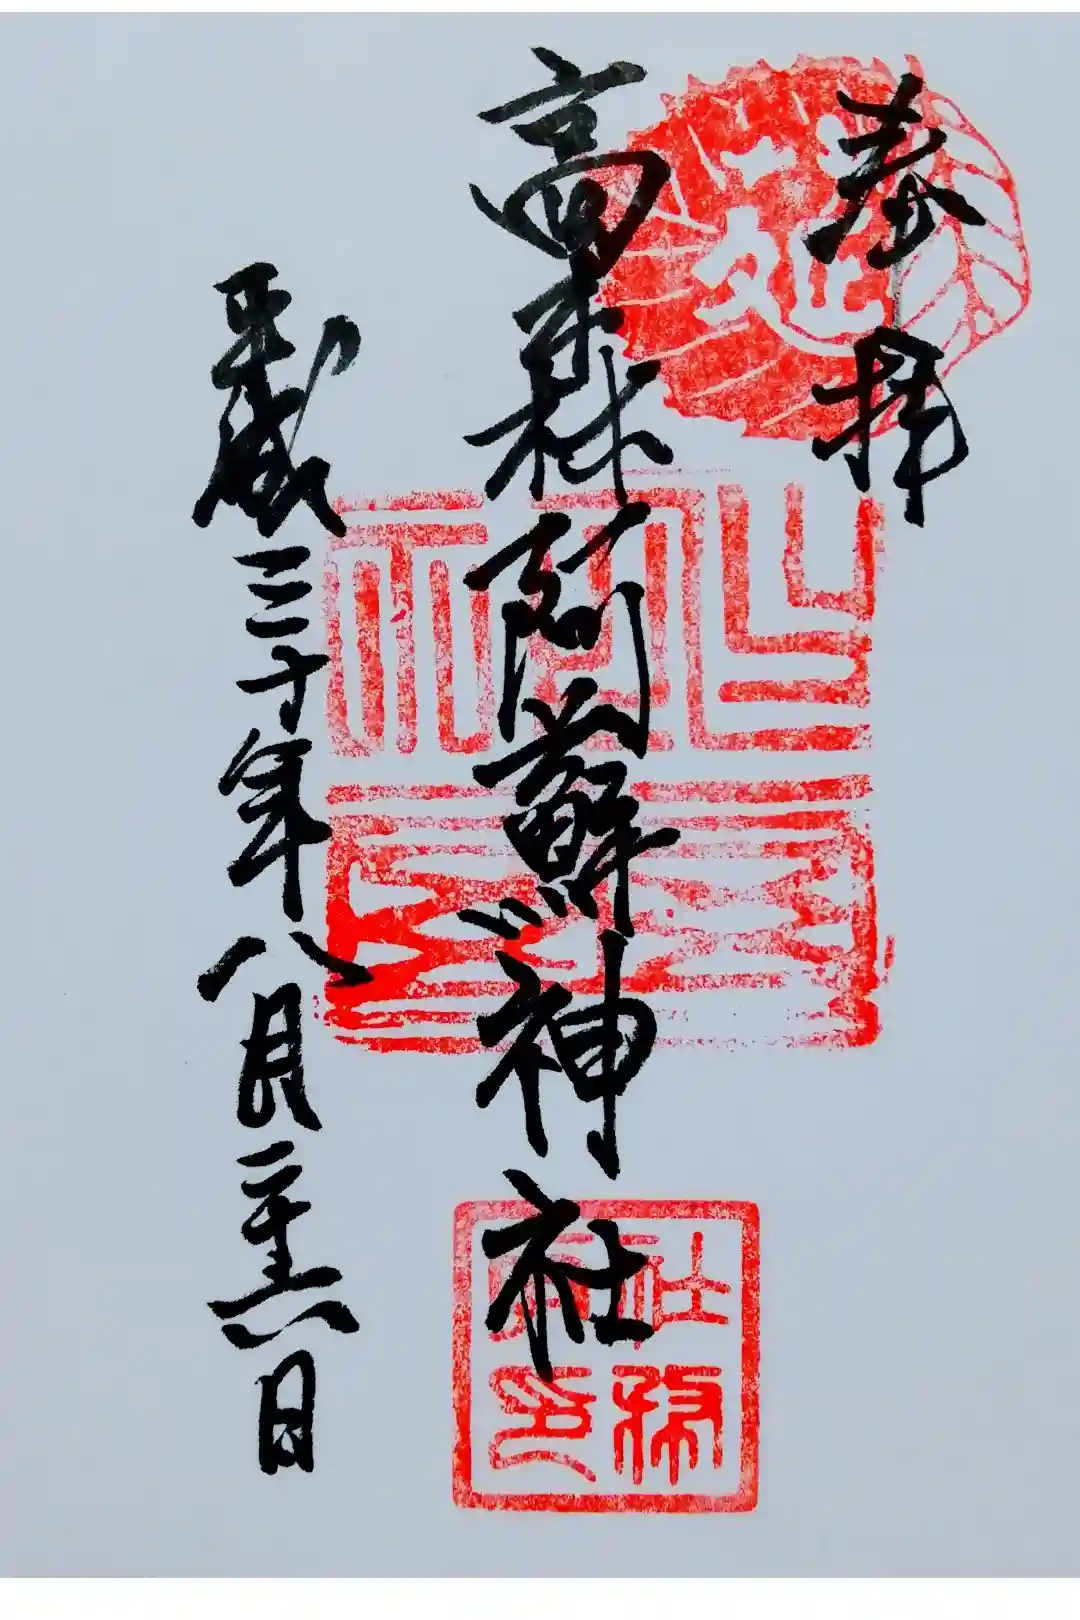 奉拝
高森阿蘇神社
平成三十年八月二十六日
社務所印